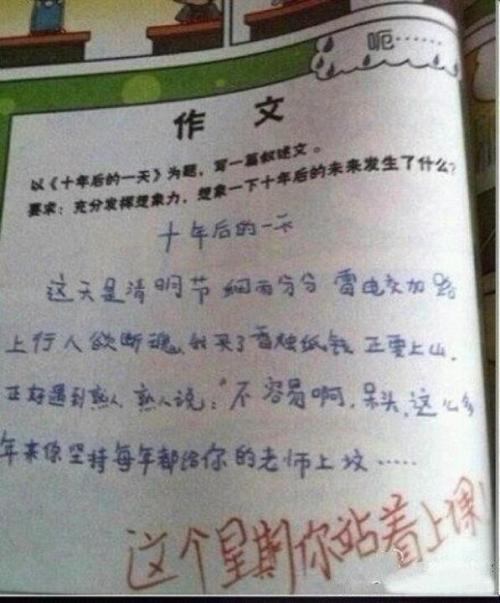 呃……
作 文
以《十年后的一天》为题，写一篇叙述文。
要求：充分发挥想象力，想象一下十年后的未来发生了什么?
十年后的一天
这天是清明节 细雨分分 雷电交加 路
上行人欲断魂,我买了香烛纸钱 正要上山.
正好遇到熟人,熟人说:"不容易啊,呆头,这么多
年来你坚持每年都给你的老师上坟……
这个星期你站着上课!